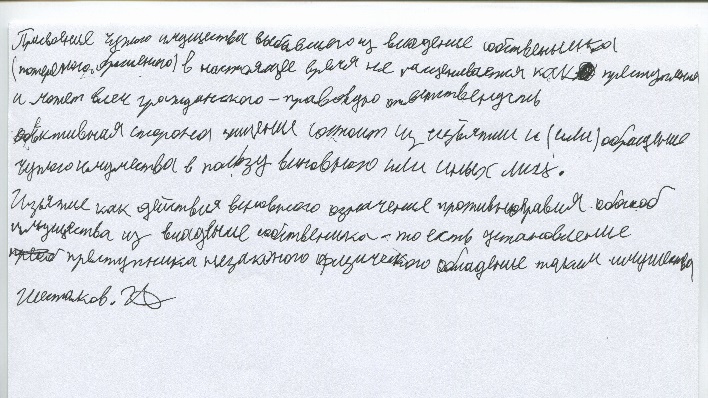 Присвоение чужого имущества выбывшего из владение собственника
(потеряного, брошенного) в настоящее время не расценивается как преступления
и может влеч гражданского-правовую отвественность
объективная сторона хищение состоит из изъятии и (или) обращение
чужого имущества в пользу виновного или иных лиц.
Изъятие как действия виновного означения противоправия обособ
имущества из владение собственника - то есть установление
преступника незаконого физического обладение таким имущества
Шестаков.